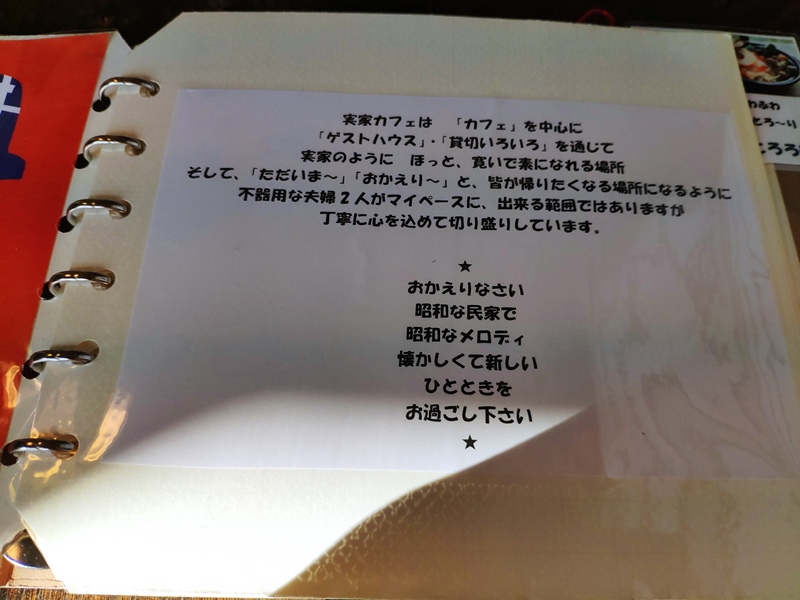 実家カフェは 「カフェ」を中心に
「ゲストハウス」・「貸切いろいろ」を通じて
実家のように ほっと、寛いで素になれる場所
そして、「ただいま～」「おかえり～」と、皆が帰りたくなる場所になるように
不器用な夫婦2人がマイペースに、出来る範囲ではありますが
丁寧に心を込めて切り盛りしています。
★
おかえりなさい
昭和な民家で
昭和なメロディ
懐かしくて新しい
ひとときを
お過ごし下さい
★